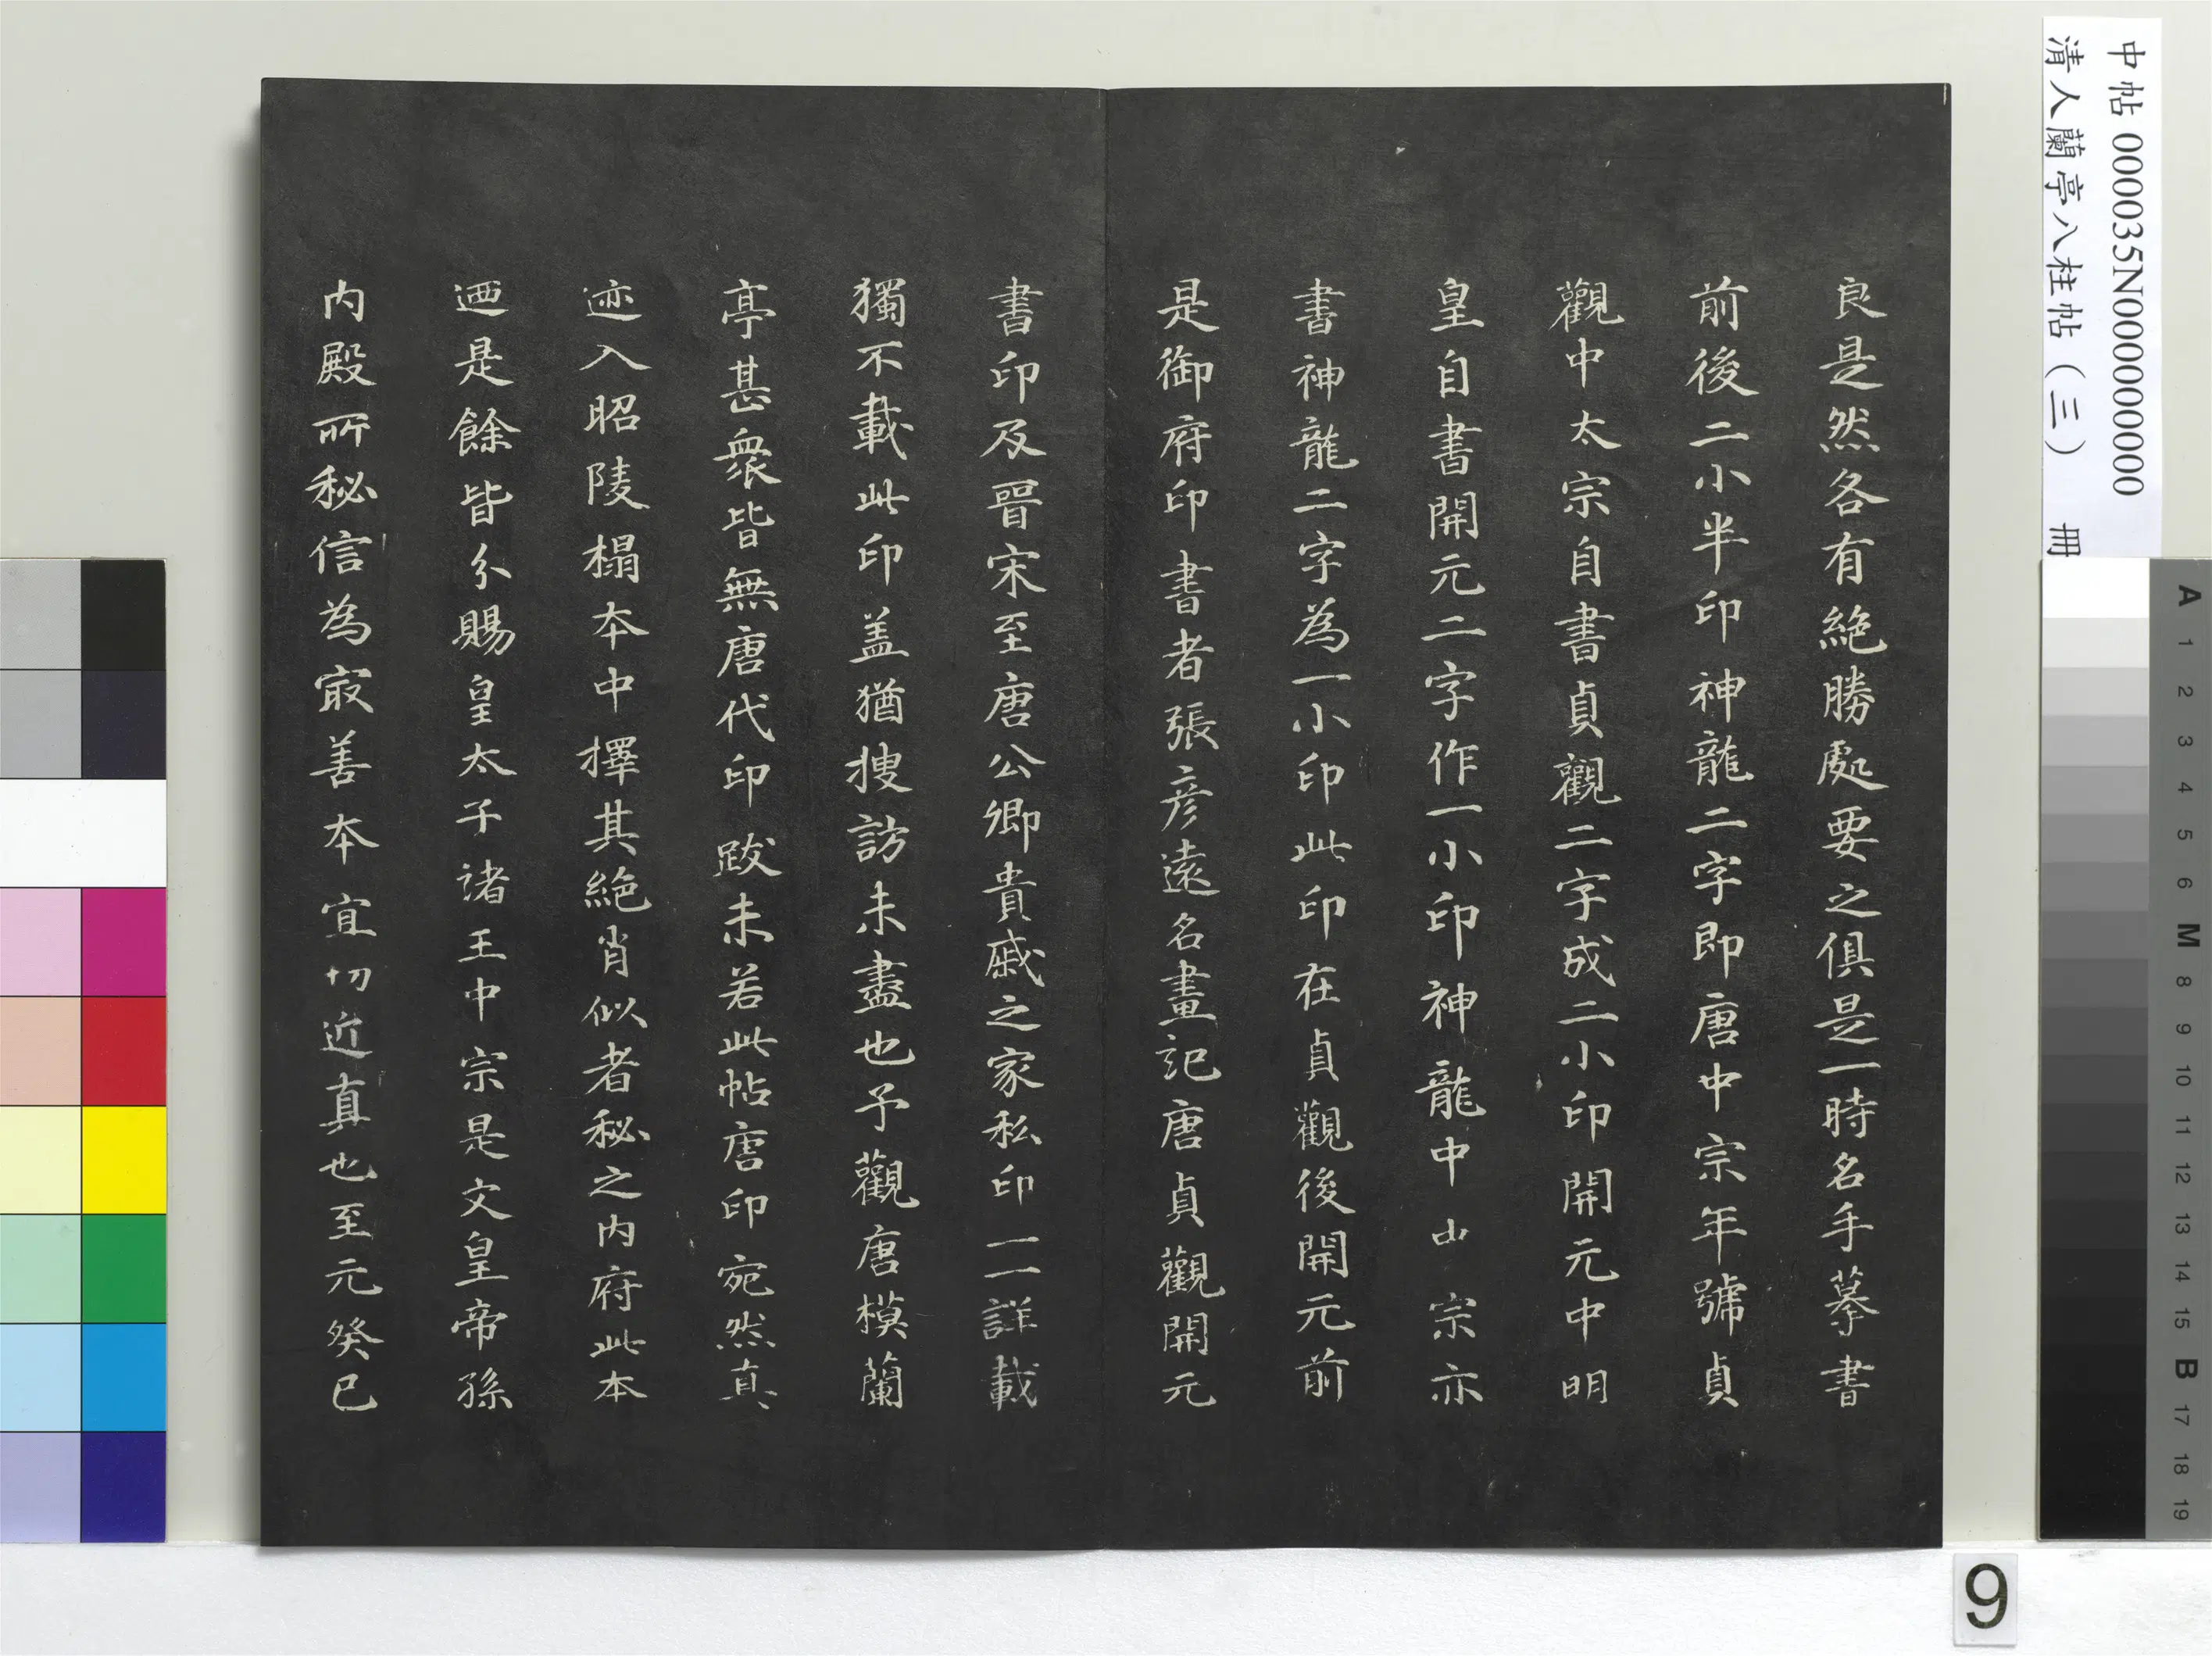 良是然各有絶勝處要之俱是一時名手摹書
前後二小半印神龍二字即唐中宗年號貞
觀中太宗自書貞觀二字成二小印開元中明
皇自書開元二字作一小印神龍中中宗亦
書神龍二字為一小印此印在貞觀後開元前
是御府印書者張彦遠名畫記唐貞觀開元
書印及晉宋至唐公卿貴戚之家私印一一詳載
獨不載此印盖猶搜訪未盡也予觀唐模蘭
亭甚衆皆無唐代印跋未若此帖唐印宛然真
迹入昭陵榻本中擇其絶肖似者秘之内府此本
迺是餘皆分賜皇太子諸王中宗是文皇帝孫
内殿所秘信為㝡善本宜切近真也至元癸巳
中帖 000035N000000000
清人蘭亭八柱帖（三） 冊
A
1
2
3
4
5
6
M
8
9
10
11
12
13
14
15
B
17
18
19
9